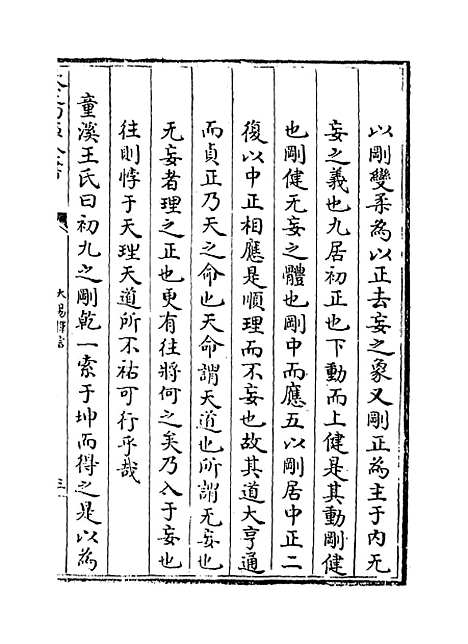 以剛變柔為以正去妄之象又剛正為主于內无
妄之義也九居初正也下動而上健是其動剛健
也剛健无妄之體也剛中而應五以剛居中正二
復以中正相應是順理而不妄也故其道大亨通
而貞正乃天之命也天命謂天道也所謂无妄也
无妄者理之正也更有往將何之矣乃入于妄也
往則悖于天理天道所不祐可行乎哉
童溪王氏曰初九之剛乾一索于坤而得之是以為
大易擇言
三